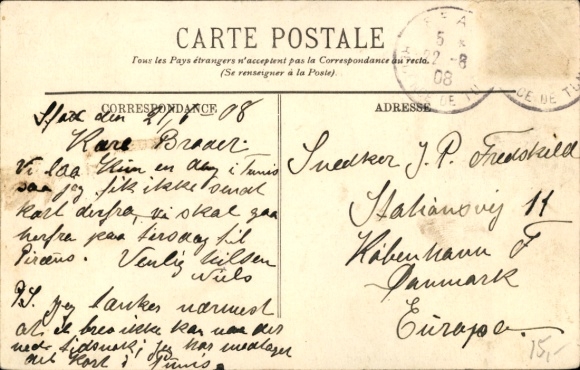 CARTE POSTALE
Tous les Pays étrangers n'acceptent pas la Correspondance au recto.
(Se renseigner à la Poste).
CORRESPONDANCE
Sfax den 21/6 - 08
Kære Broder
Vi laa kun en dag i Tunis
saa jeg fik ikke sendt
kort derfra, vi skal gaa
herfra paa tirsdag til
Piræus. Venlig hilsen
Niels
P.S. jeg tænker nærmest
at et brev ikke kan naa der
ned tidsnok, jeg har modtaget
dit kort i Tunis.
ADRESSE
Snedker J. P. Fredskild
Stationsvej 11
København F
Danmark
Europa.
5
22 - 6
08
DE TU
CE DE TU
15,-